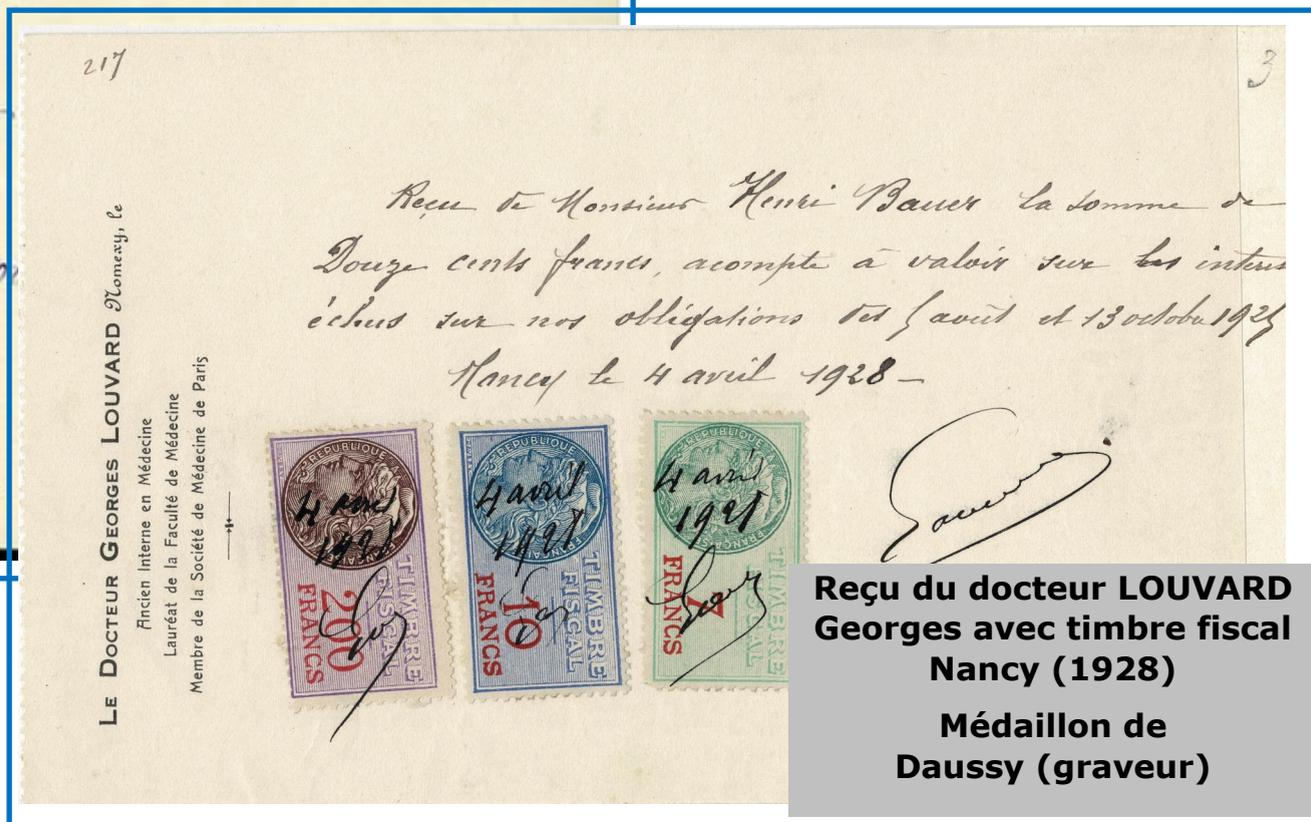 217
3
LE DOCTEUR GEORGES LOUVARD Nomexy, le
Ancien Interne en Médecine
Lauréat de la Faculté de Médecine
Membre de la Société de Médecine de Paris
Reçu de Monsieur Henri Bauer la somme de
Douze cents francs, acompte à valoir sur les interets
échus sur nos obligations des 5 août et 13 octobre 1925
Nancy le 4 avril 1928 -
RÉPUBLIQUE FRANÇAISE
4 avril
1928
TIMBRE
FISCAL
200
FRANCS
RÉPUBLIQUE FRANÇAISE
4 avril
1928
TIMBRE
FISCAL
10
FRANCS
RÉPUBLIQUE FRANÇAISE
4 avril
1928
TIMBRE
FISCAL
FRANCS
Reçu du docteur LOUVARD
Georges avec timbre fiscal
Nancy (1928)
Médaillon de
Daussy (graveur)